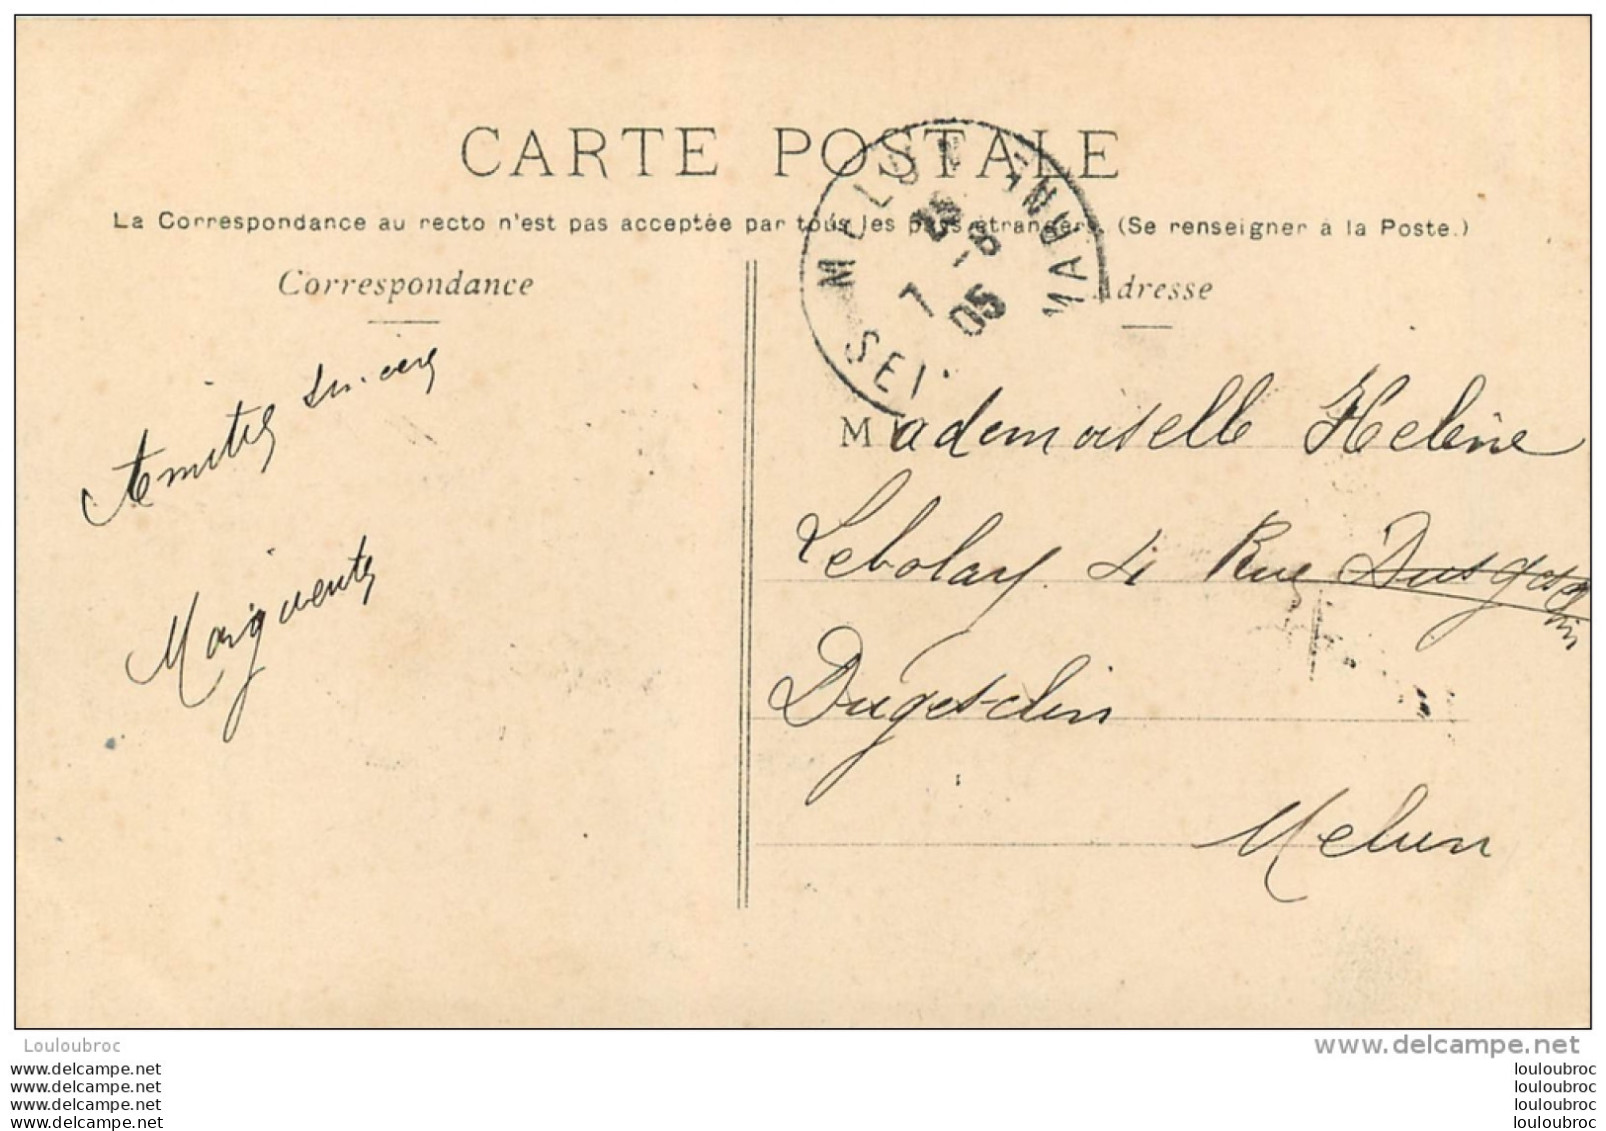 CARTE POSTALE
La Correspondance au recto n'est pas acceptée par tous les pays étrangers. (Se renseigner à la Poste.)
Correspondance
Adresse
MELUN
7 - 8
05
SEI
MARNE
Amitiés sincères
Marguerite
Mademoiselle Helène
Lebolay. 4 Rue
Dugesclin
Melun
Louloubroc
www.delcampe.net
www.delcampe.net
www.delcampe.net
www.delcampe.net
www.delcampe.net
louloubroc
louloubroc
louloubroc
louloubroc